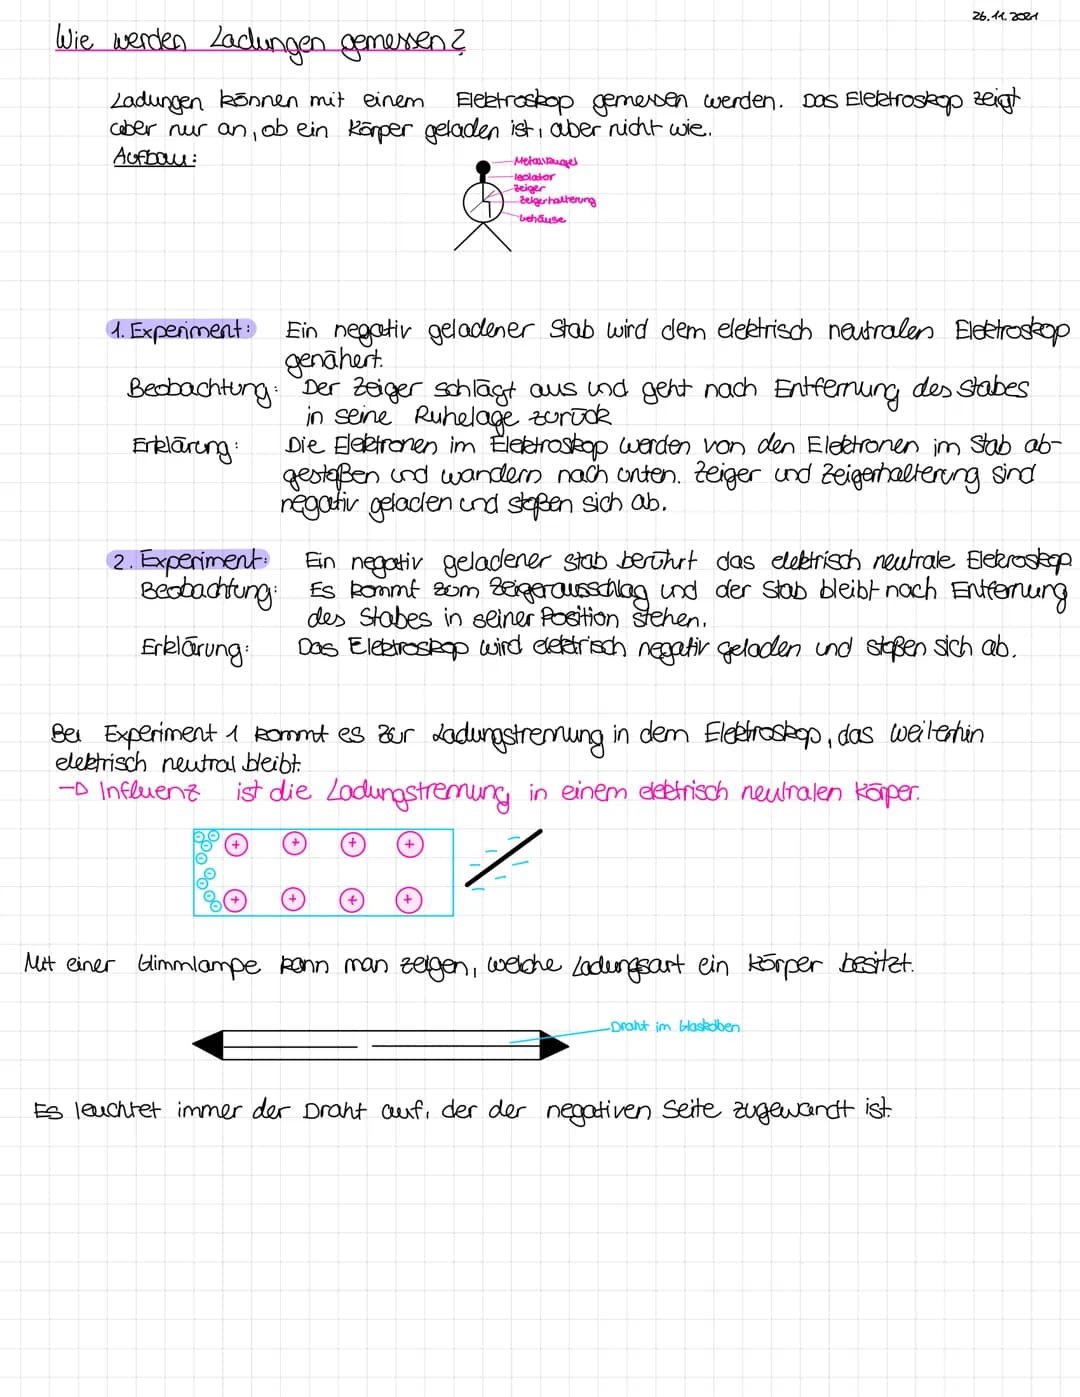 26.11.2021
Wie werden Ladungen gemessen?
Ladungen können mit einem Elektroskop gemessen werden. Das Elektroskop zeigt
aber nur an, ob ein Körper geladen ist, aber nicht wie.
Aufbau:
Metallkugel
Isolator
Zeiger
Zeigerhalterung
Gehäuse
1. Experiment: Ein negativ geladener Stab wird dem elektrisch neutralen Elektroskop
genähert.
Beobachtung: Der Zeiger schlägt aus und geht nach Entfernung des Stabes
in seine Ruhelage zurück
Erklärung: Die Elektronen im Elektroskop werden von den Elektronen im Stab ab-
gestoßen und wandern nach unten. Zeiger und Zeigerhalterung sind
negativ geladen und stoßen sich ab.
2. Experiment: Ein negativ geladener Stab berührt das elektrisch neutrale Elekroskop
Beobachtung: Es kommt zum Zeigerausschlag und der Stab bleibt nach Entfernung
des Stabes in seiner Position stehen.
Erklärung: Das Elektroskop wird elektrisch negativ geladen und stoßen sich ab.
Bei Experiment 1 kommt es zur Ladungstrennung in dem Elektroskop, das weiterhin
elektrisch neutral bleibt.
→ Influenz ist die Ladungstrennung in einem elektrisch neutralen Körper.
Mit einer Glimmlampe kann man zeigen, welche Ladungsart ein Körper besitzt.
Draht im Glaskolben
Es leuchtet immer der Draht auf, der der negativen Seite zugewandt ist.